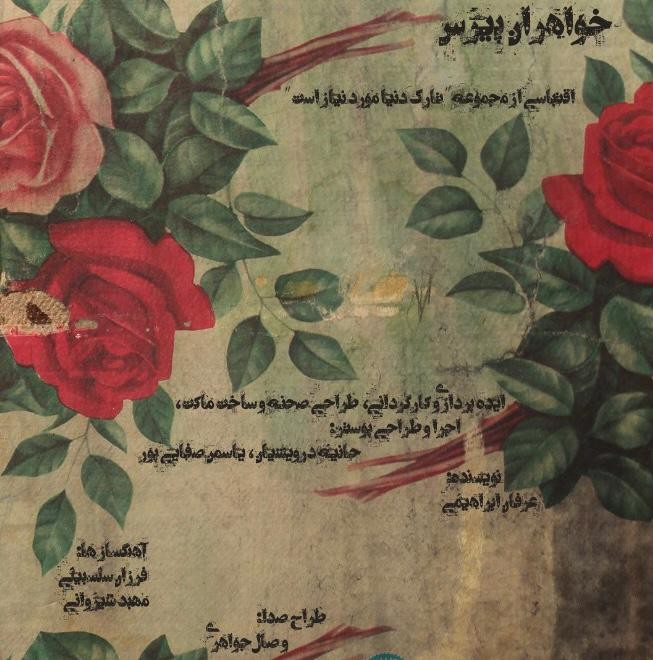 خواهران بیژس
اقتباسی از مجموعه "تارک دنیا مورد نیاز است"
ایده پردازی و کارگردانی، طراحی صحنه و ساخت ماکت،
اجرا و طراحی پوستر:
حانیه درویشیار، یاسمن صفایی پور
نویسنده:
عرفان ابراهیمی
آهنگساز ها:
فرزان سلسبیلی
مهبد شیروانی
طراح صدا:
وصال جواهری